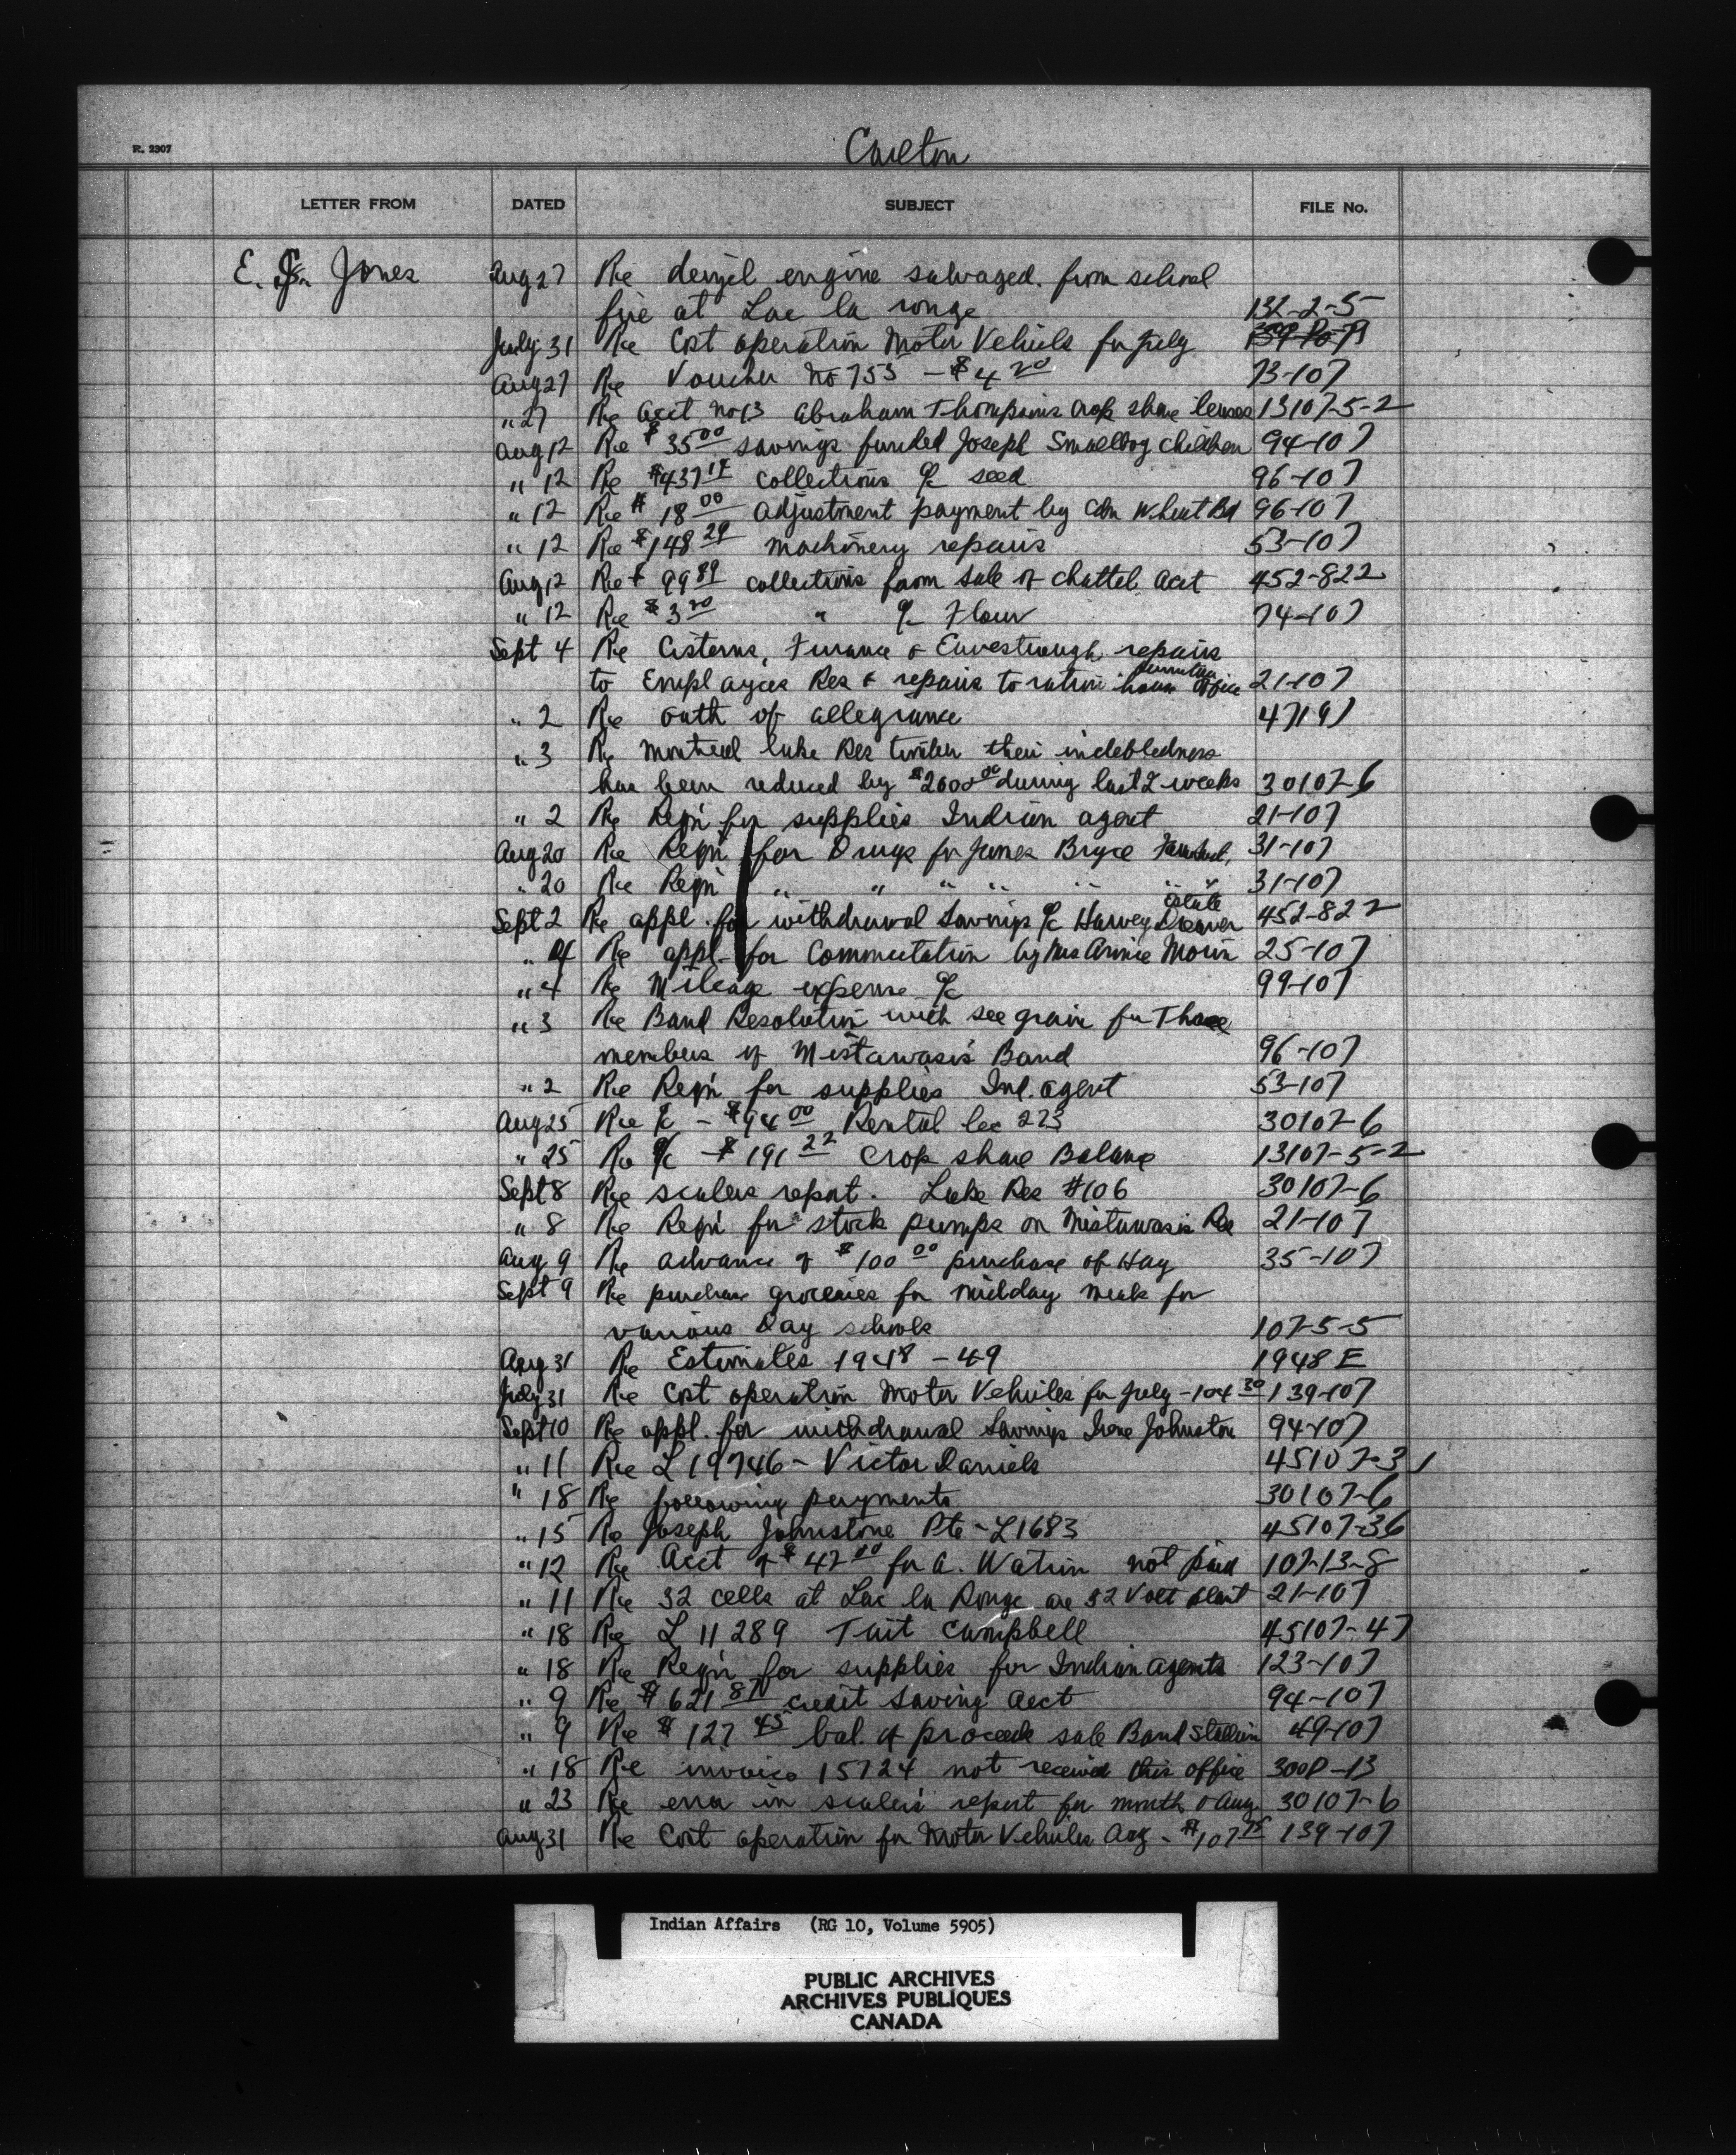 R. 2307
Carlton
LETTER FROM DATED SUBJECT FILE No.
E. Jones Aug 27 Re deizel engine salvaged from school
fire at Lac la ronge 132-2-5
July 31 Re Cost operation Motor Vehicles for July
Aug 27 Re Voucher No 753 - $4 20 73-107
" 27 Re acct no 13 Abraham Thompsons crop share leases 13107-5-2
Aug 12 Re $35 00 savings funded Joseph Smalldog children 94-107
" 12 Re $437 14 collections a/c seed 96-107
" 12 Re $18 00 adjustment payment by Cdn Wheat Bd 96-107
" 12 Re $148 29 machinery repairs 53-107
Aug 12 Re $99 89 collections from sale of chattel acct 452-822
" 12 Re $3 20 " a/c Flour 74-107
Sept 4 Re Cisterns, Furnace & Eavestrough repairs
to Employees Res & repairs to ration house office 21-107
" 2 Re oath of allegiance 47191
" 3 Re Montreal lake Res timber their indebtedness
has been reduced by $2600 00 during last 2 weeks 30107-6
" 2 Re Reqn for supplies Indian agent 21-107
Aug 20 Re Reqn for Drugs for James Bryce 31-107
" 20 Re Reqn " " " " " " " 31-107
Sept 2 Re appl. for withdrawal Savings a/c Harvey estate 452-822
" 4 Re appl. for Commutation by Mrs Annie Morin 25-107
" 4 Re Mileage expense a/c 99-107
" 3 Re Band Resolution with see grain for Those
members of Mistawasis Band 96-107
" 2 Re Reqn for supplies Ind. agent 53-107
Aug 25 Re a/c - $94 00 Rental lec 223 30107-6
" 25 Re a/c - $191 22 Crop share Balance 13107-5-2
Sept 8 Re scalers report. Lake Res #106 30107-6
" 8 Re Reqn for stock pumps on Mistawasis Res 21-107
Aug 9 Re advance of $100 00 purchase of Hay 35-107
Sept 9 Re purchase groceries for midday meals for
various Day schools 107-5-5
Aug 31 Re Estimates 1948-49 1948 E
July 31 Re Cost operation Motor Vehicles for July - 104 30 139-107
Sept 10 Re appl. for withdrawal Savings Irene Johnston 94-107
" 11 Re L 19746 - Victor Daniels 45107-31
" 18 Re following payments 30107-6
" 15 Re Joseph Johnstone Pte - L1683 45107-36
" 12 Re Acct of $42 00 for A. Watson not paid 107-13-8
" 11 Re 32 cells at Lac la Ronge are 32 Volt plant 21-107
" 18 Re L 11289 Tait Campbell 45107-47
" 18 Re Reqn for supplies for Indian Agents 123-107
" 9 Re $621 87 credit Saving Acct 94-107
" 9 Re $127 45 bal. of proceeds sale Band Stallion 49-107
" 18 Re invoice 15724 not received this office 300P-13
" 23 Re error in scalers report for month of Aug 30107-6
Aug 31 Re Cost operation for Motor Vehicles Aug - $107 75 139-107
Indian Affairs (RG 10, Volume 5905)
PUBLIC ARCHIVES
ARCHIVES PUBLIQUES
CANADA